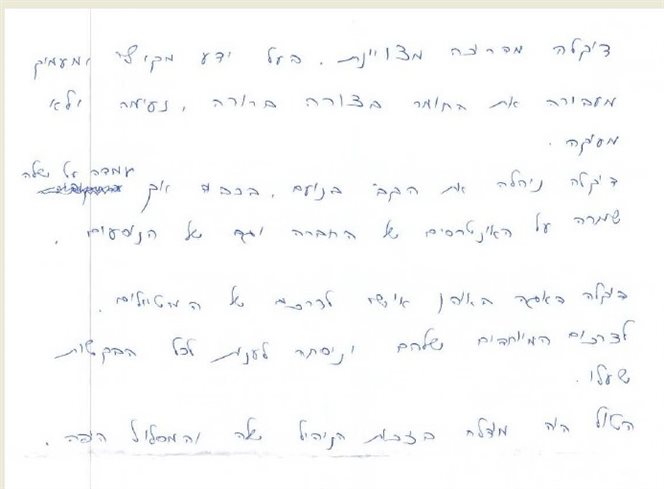 דיקלה מדריכה מצויינת, בעל ידע מקיף ומעמיק
מעבירה את החומר בצורה ברורה, נעימה ולא
מציקה.
דיקלה ניהלה את הקב' בנועם, בכבוד אך עמדה על שלה
שמרה על האינטרסים של החברה וגם של הנוסעים.
דיקלה דאגה באופן אישי לצרכים של המטיילים,
לצרכים המיוחדים שלהם וניסתה לענות לכל הבקשות
שעלו.
הטיול היה מוצלח בזכות הניהול שלה והמסלול היפה.